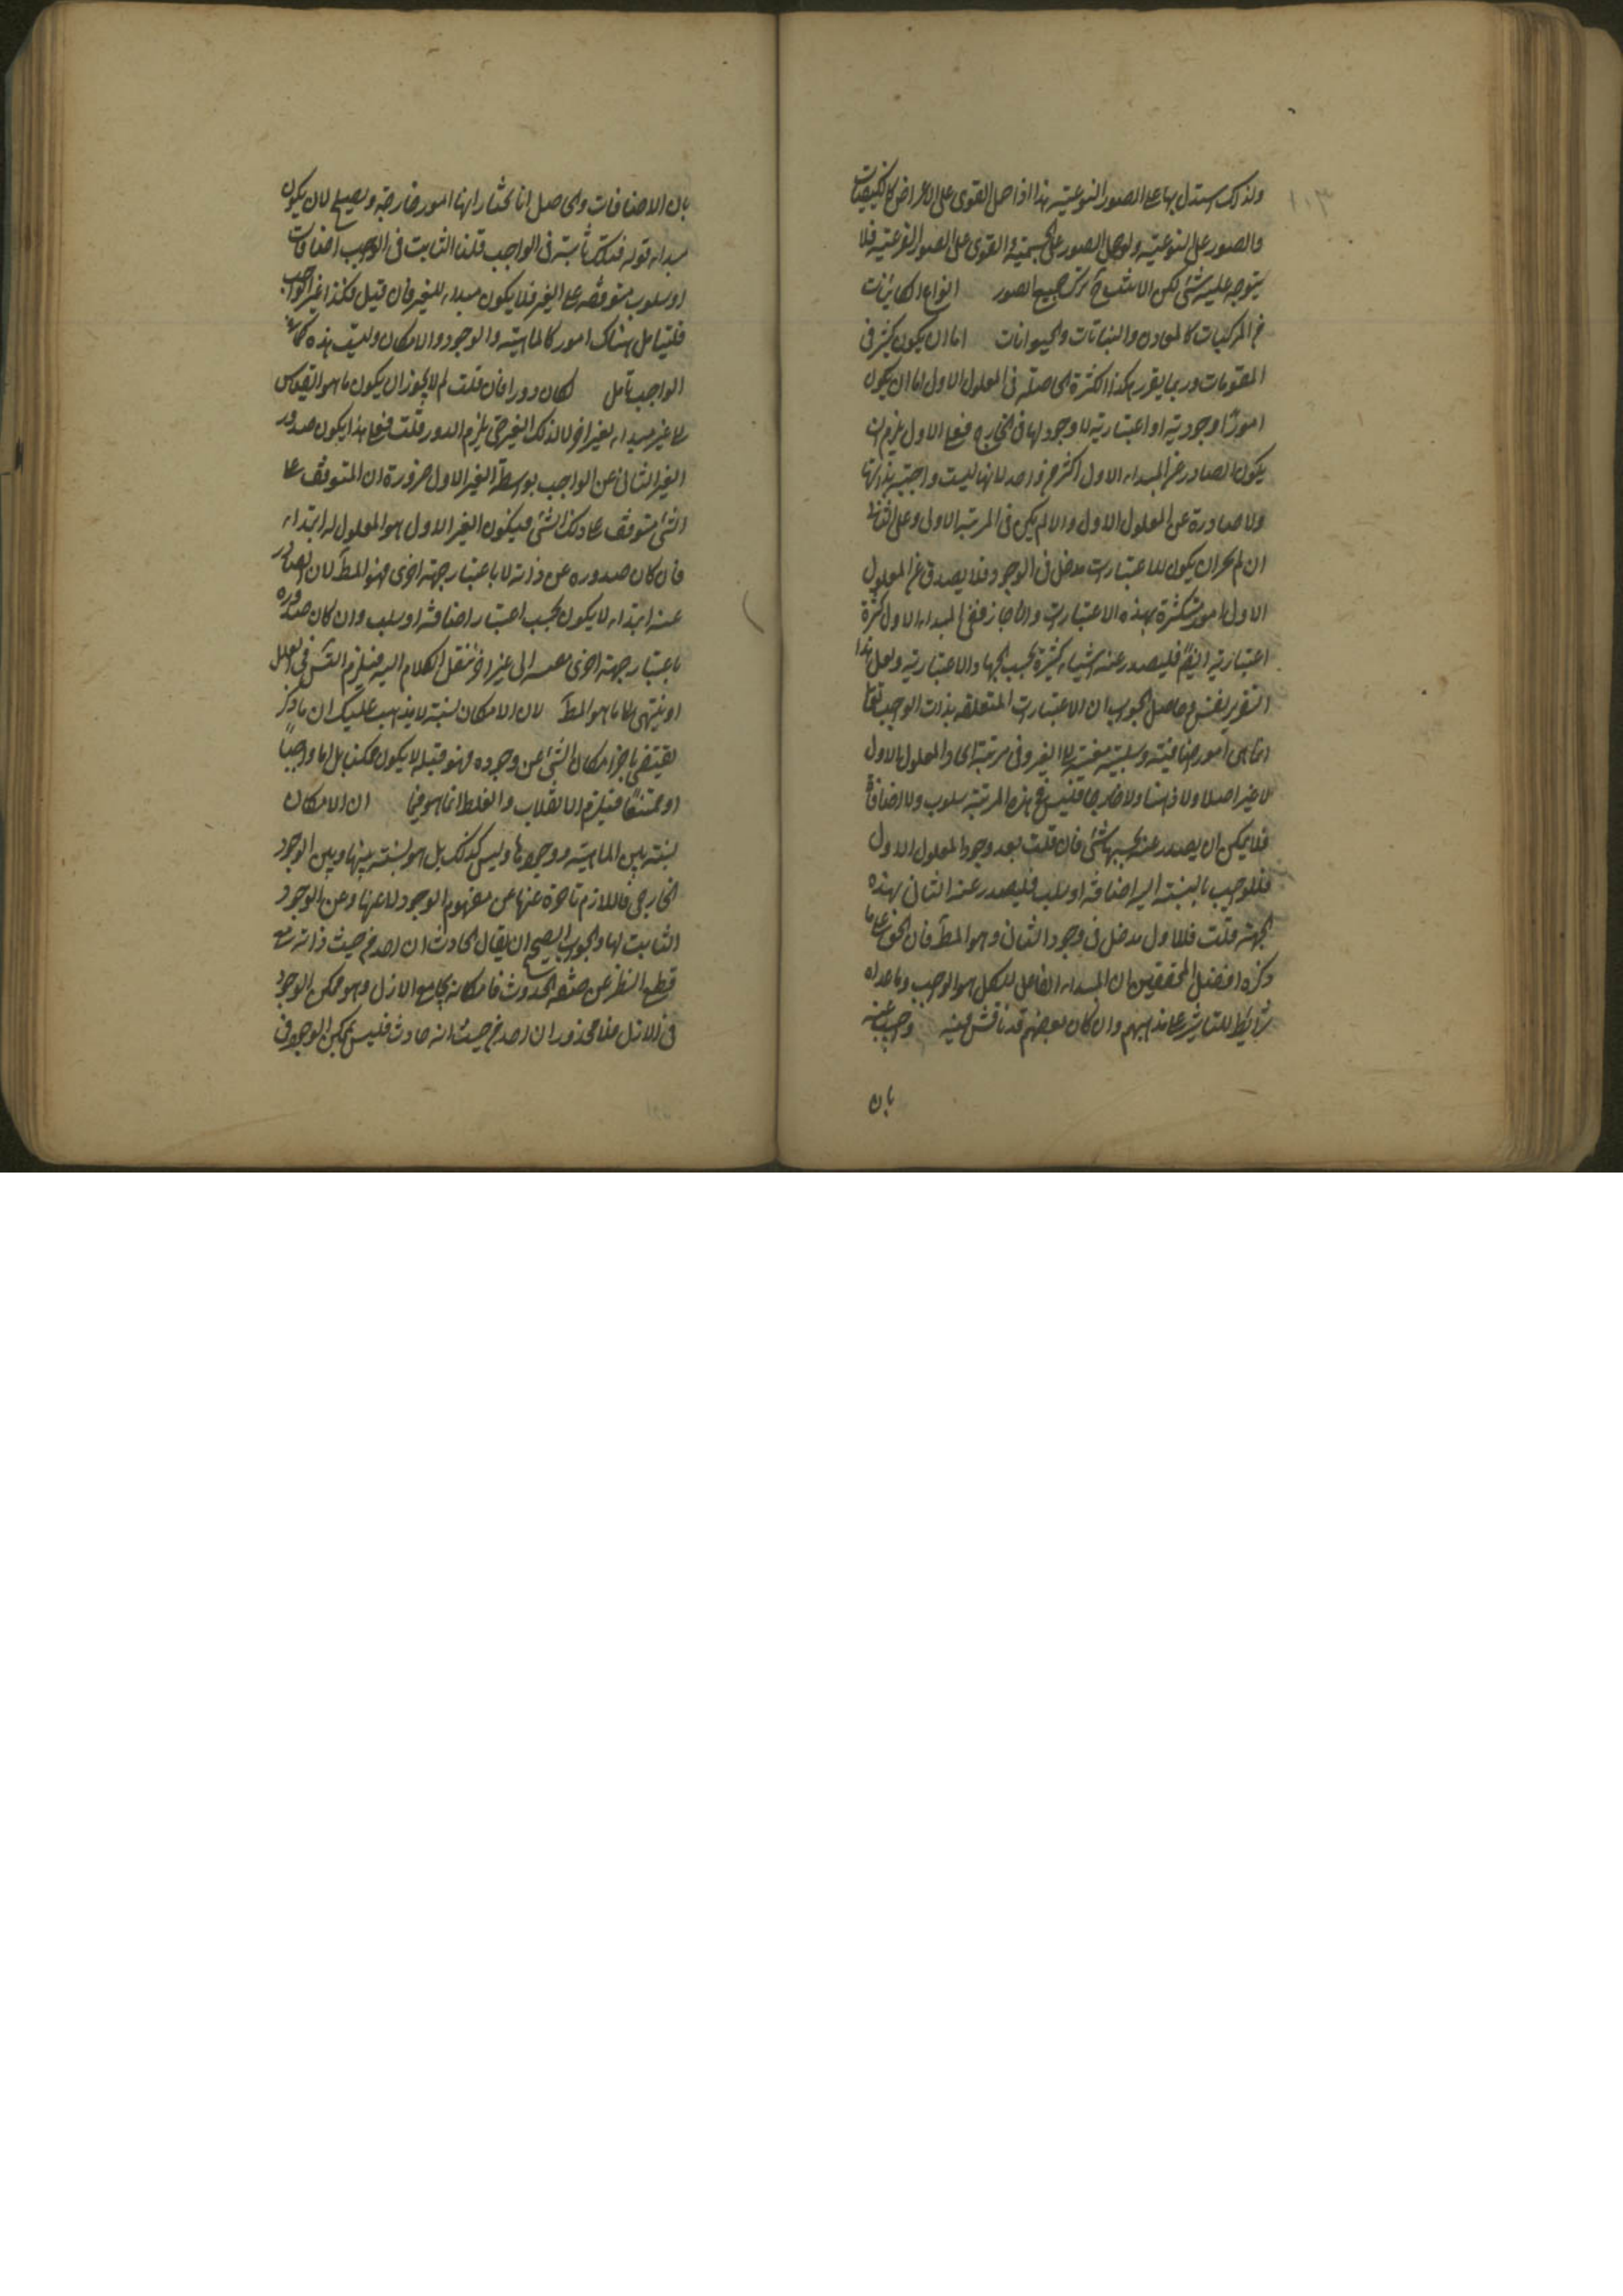 ١٠٣
ولذلك استدل بها على الصور النوعية هذا اذا حمل القوى على الاعراض كالكيفيات
والصور على النوعية ولو حمل الصور على الجسمية والقوى على الصور النوعية فلا
يتوجه عليه شئ لكن الاشبه ترك جميع الصور انواع الكائنات
من المركبات كالمعادن والنباتات والحيوانات اما ان يكون كثر فى
المقومات وربما يقرر هكذا الكثرة الحاصلة فى المعلول الاول اما ان يكون
امورا وجودية او اعتبارية لا وجود لها فى الخارج فعلى الاول يلزم ان
يكون الصادر عن المبداء الاول اكثر من واحد لانها ليست واجبة بذاتها
ولا صادرة عن المعلول الاول والا لم يكن فى المرتبة الاولى وعلى الثانى
ان لم يجز ان يكون للاعتبارات مدخل فى الوجود فلا يصدق عن المعلول
الاول امور متكثرة بهذه الاعتبارات وان جاز ففى المبداء الاول كثرة
اعتبارية ايضا فليصدر عنه اشياء كثيرة بحسب الجهات الاعتبارية ولعل هذا
التقرير وحاصل الجواب ان الاعتبارات المتعلقة بذات الواجب تعالى
انما هى امور اضافية وسلبية الى الغير وفى مرتبة ايجاد المعلول الاول
لا غير اصلا ولا ذهنا ولا خارجا فليس فى هذه المرتبة سلوب ولا اضافة
فلا يمكن ان يصدر عنه بحسبها شئ فان قلت بعد وجود المعلول الاول
فللواجب بالنسبة اليه اضافة او سلب فليصدر عنه الثانى بهذه
الجهة قلت فللاول مدخل فى وجود الثانى وهو المط فان الحق على ما
ذكره افضل المحققين ان المبداء الفاعل للكل هو الواجب وما عداه
شرائط للتاثير على مذهبهم وان كان بعضهم قد ناقش فيه وجب عنه
بان
بان الاضافات والحاصل انا نختار انها امور خارجة ويصح لان يكون
مبداء قوله فذلك ثابتة فى الواجب قلنا الثابت فى الواجب اضافات
او سلوب متوقفة على الغير فلا يكون مبداء للغير فان قيل فكذا غير الواجب
فليتامل هناك امور كالماهية والوجود والامكان وليست هذه
الواجب تامل لكان دورا فان قلت لم لا يجوز ان يكون ما هو
على غير مبداء لغير اخر لا لذلك الغير حتى يلزم الدور قلت فعلى هذا يكون صدور
الغير الثانى عن الواجب بواسطة الغير الاول ضرورة ان المتوقف على
الشئ متوقف على ذلك الشئ فيكون الغير الاول هو المعلول له ابتداء
فان كان صدوره عن ذاته لا باعتبار جهة اخرى فهو المط لان الصادر
عنه ابتداء لا يكون بحسب اعتبار اضافة او سلب وان كان صدوره
باعتبار جهة اخرى الى غير اخر ننقل الكلام اليه فيلزم التس فى العلل
او ينتهى الى ما هو المط لان الامكان نسبة لا يذهب عليك ان ما ذكر
يقتضى تاخر امكان الشئ عن وجوده فهو قبله لا يكون ممكنا بل اما واجبا
او ممتنعا فيلزم الانقلاب والغلط انما هو فيما ان الامكان
نسبة بين الماهية ووجودها وليس كذلك بل هو نسبة بينها وبين الوجود
الخارجى فاللازم تاخره عنها عن مفهوم الوجود لا عنها وعن الوجود
الثابت لها والجواب الصحيح ان يقال الحادث ان اخذ من حيث ذاته مع
قطع النظر عن صفة الحدوث فامكانه يجامع الازل وهو ممكن الوجود
فى الازل فلا محذور ان اخذ من حيث انه حادث فليس بممكن الوجود فى